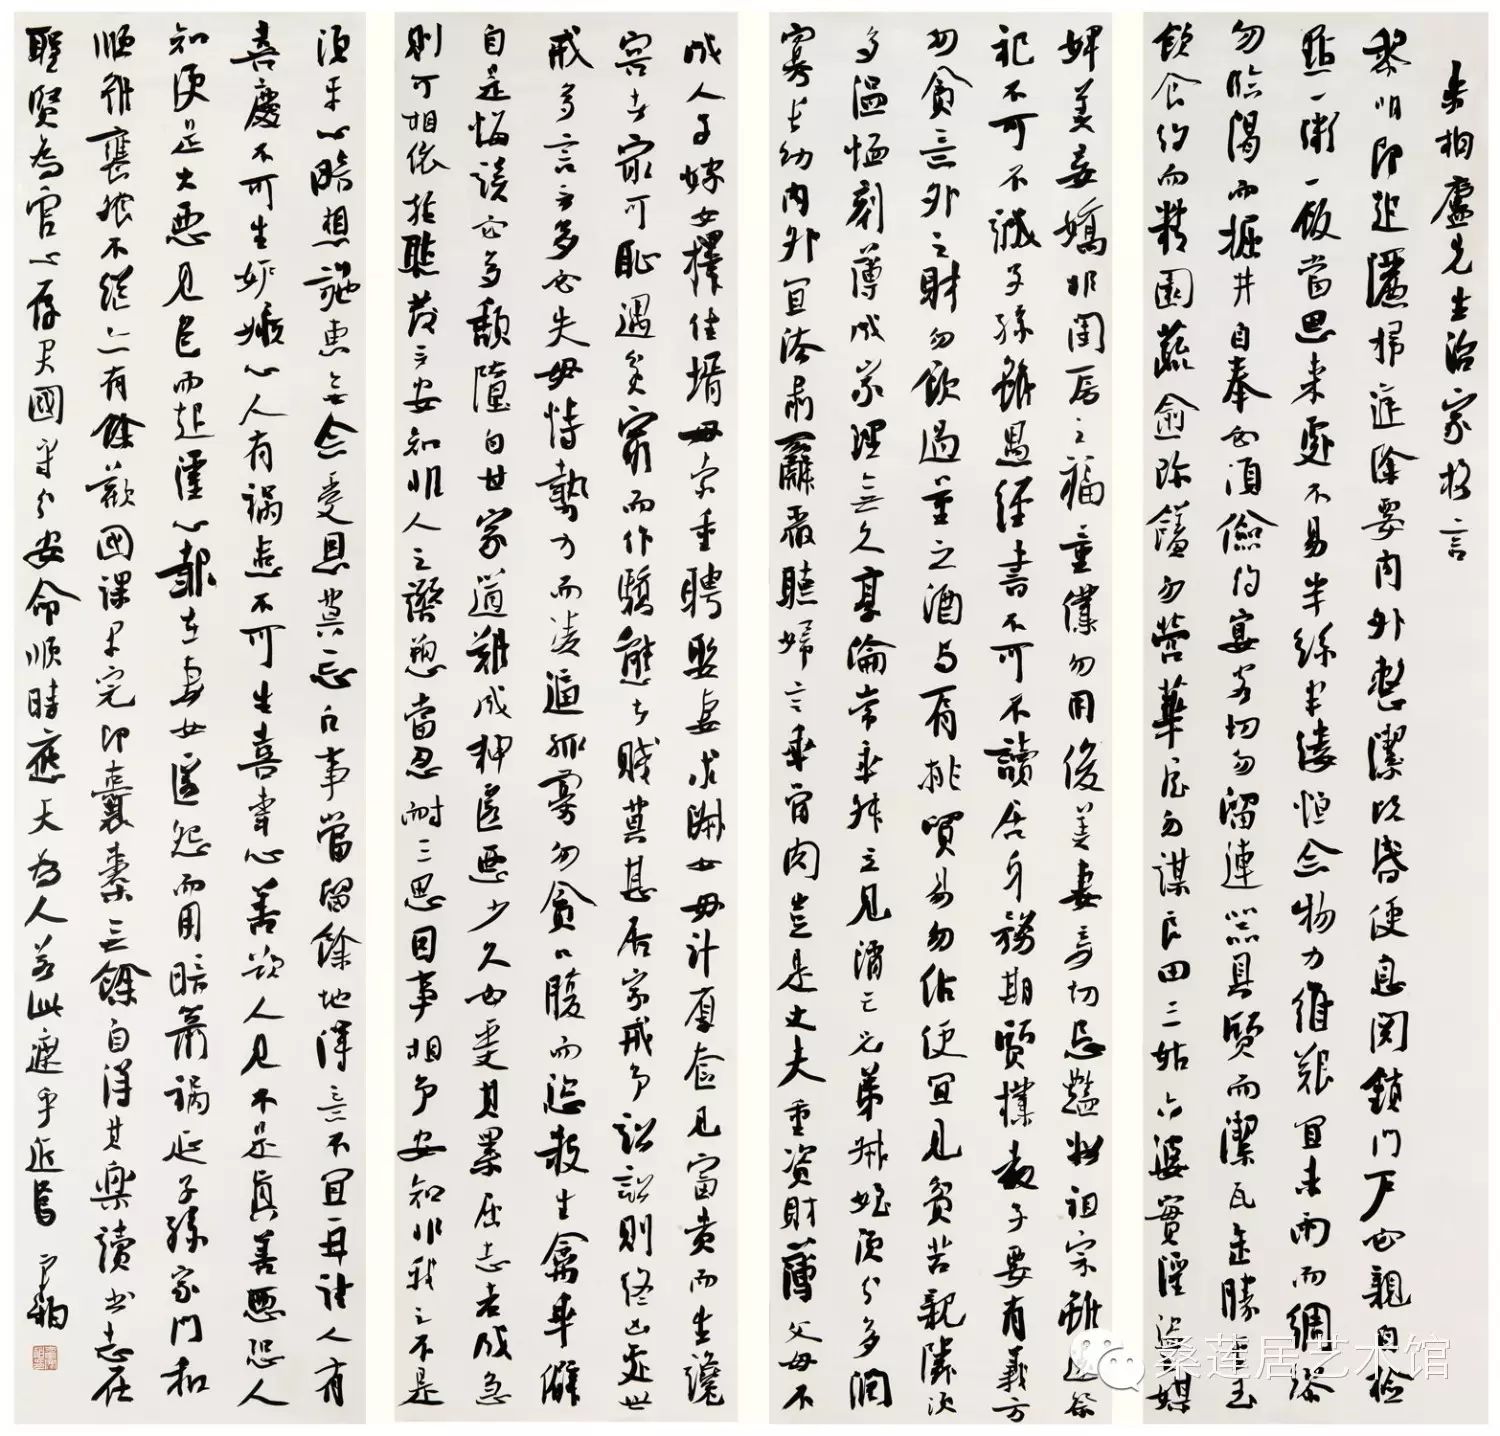 朱柏廬先生治家格言
黎明即起灑掃庭除要內外整潔既昏便息関鎖門戶必親自檢
點一粥一飯當思来處不易半絲半縷恒念物力維艱宜未雨而綢繆
勿臨渴而掘井自奉必須儉約宴客切勿留連器具質而潔瓦缶勝金玉
飲食約而精園蔬愈珍饈勿營華屋勿謀良田三姑六婆實淫盜之媒
婢美妾嬌非閨房之福童僕勿用俊美妻妾切忌豔妝祖宗雖遠祭
祀不可不誠子孫雖愚經書不可不讀居身務期質樸教子要有義方
勿貪意外之財勿飲過量之酒與肩挑貿易勿佔便宜見貧苦親隣須
多溫恤刻薄成家理無久享倫常乖舛立見消亡兄弟叔姪須分多潤
寡長幼內外宜法肅辭嚴聽婦言乖骨肉豈是丈夫重資財薄父母不
成人子嫁女擇佳壻毋索重聘娶妻求淑女毋計厚奩見富貴而生讒
容者最可恥遇貧窮而作驕態者賤莫甚居家戒爭訟訟則終凶處世
戒多言言多必失毋恃勢力而淩逼孤寡勿貪口腹而恣殺生禽乖僻
自是悔誤必多頹隳自甘家道難成狎匿惡少久必受其累屈志老成急
則可相依輕聽發言安知非人之譖愬當忍耐三思因事相爭安知非我之不是
須平心暗想施惠無念受恩莫忘凡事當留餘地得意不宜再往人有
喜慶不可生妒嫉心人有禍患不可生喜幸心善欲人見不是真善惡恐人
知便是大惡見色而起淫心報在妻女匿怨而用暗箭禍延子孫家門和
順雖饔飧不繼亦有餘歡國課早完即囊橐無餘自得其樂讀書志在
聖賢為官心存君國守分安命順時應天為人若此庶乎近焉
桑莲居艺术馆